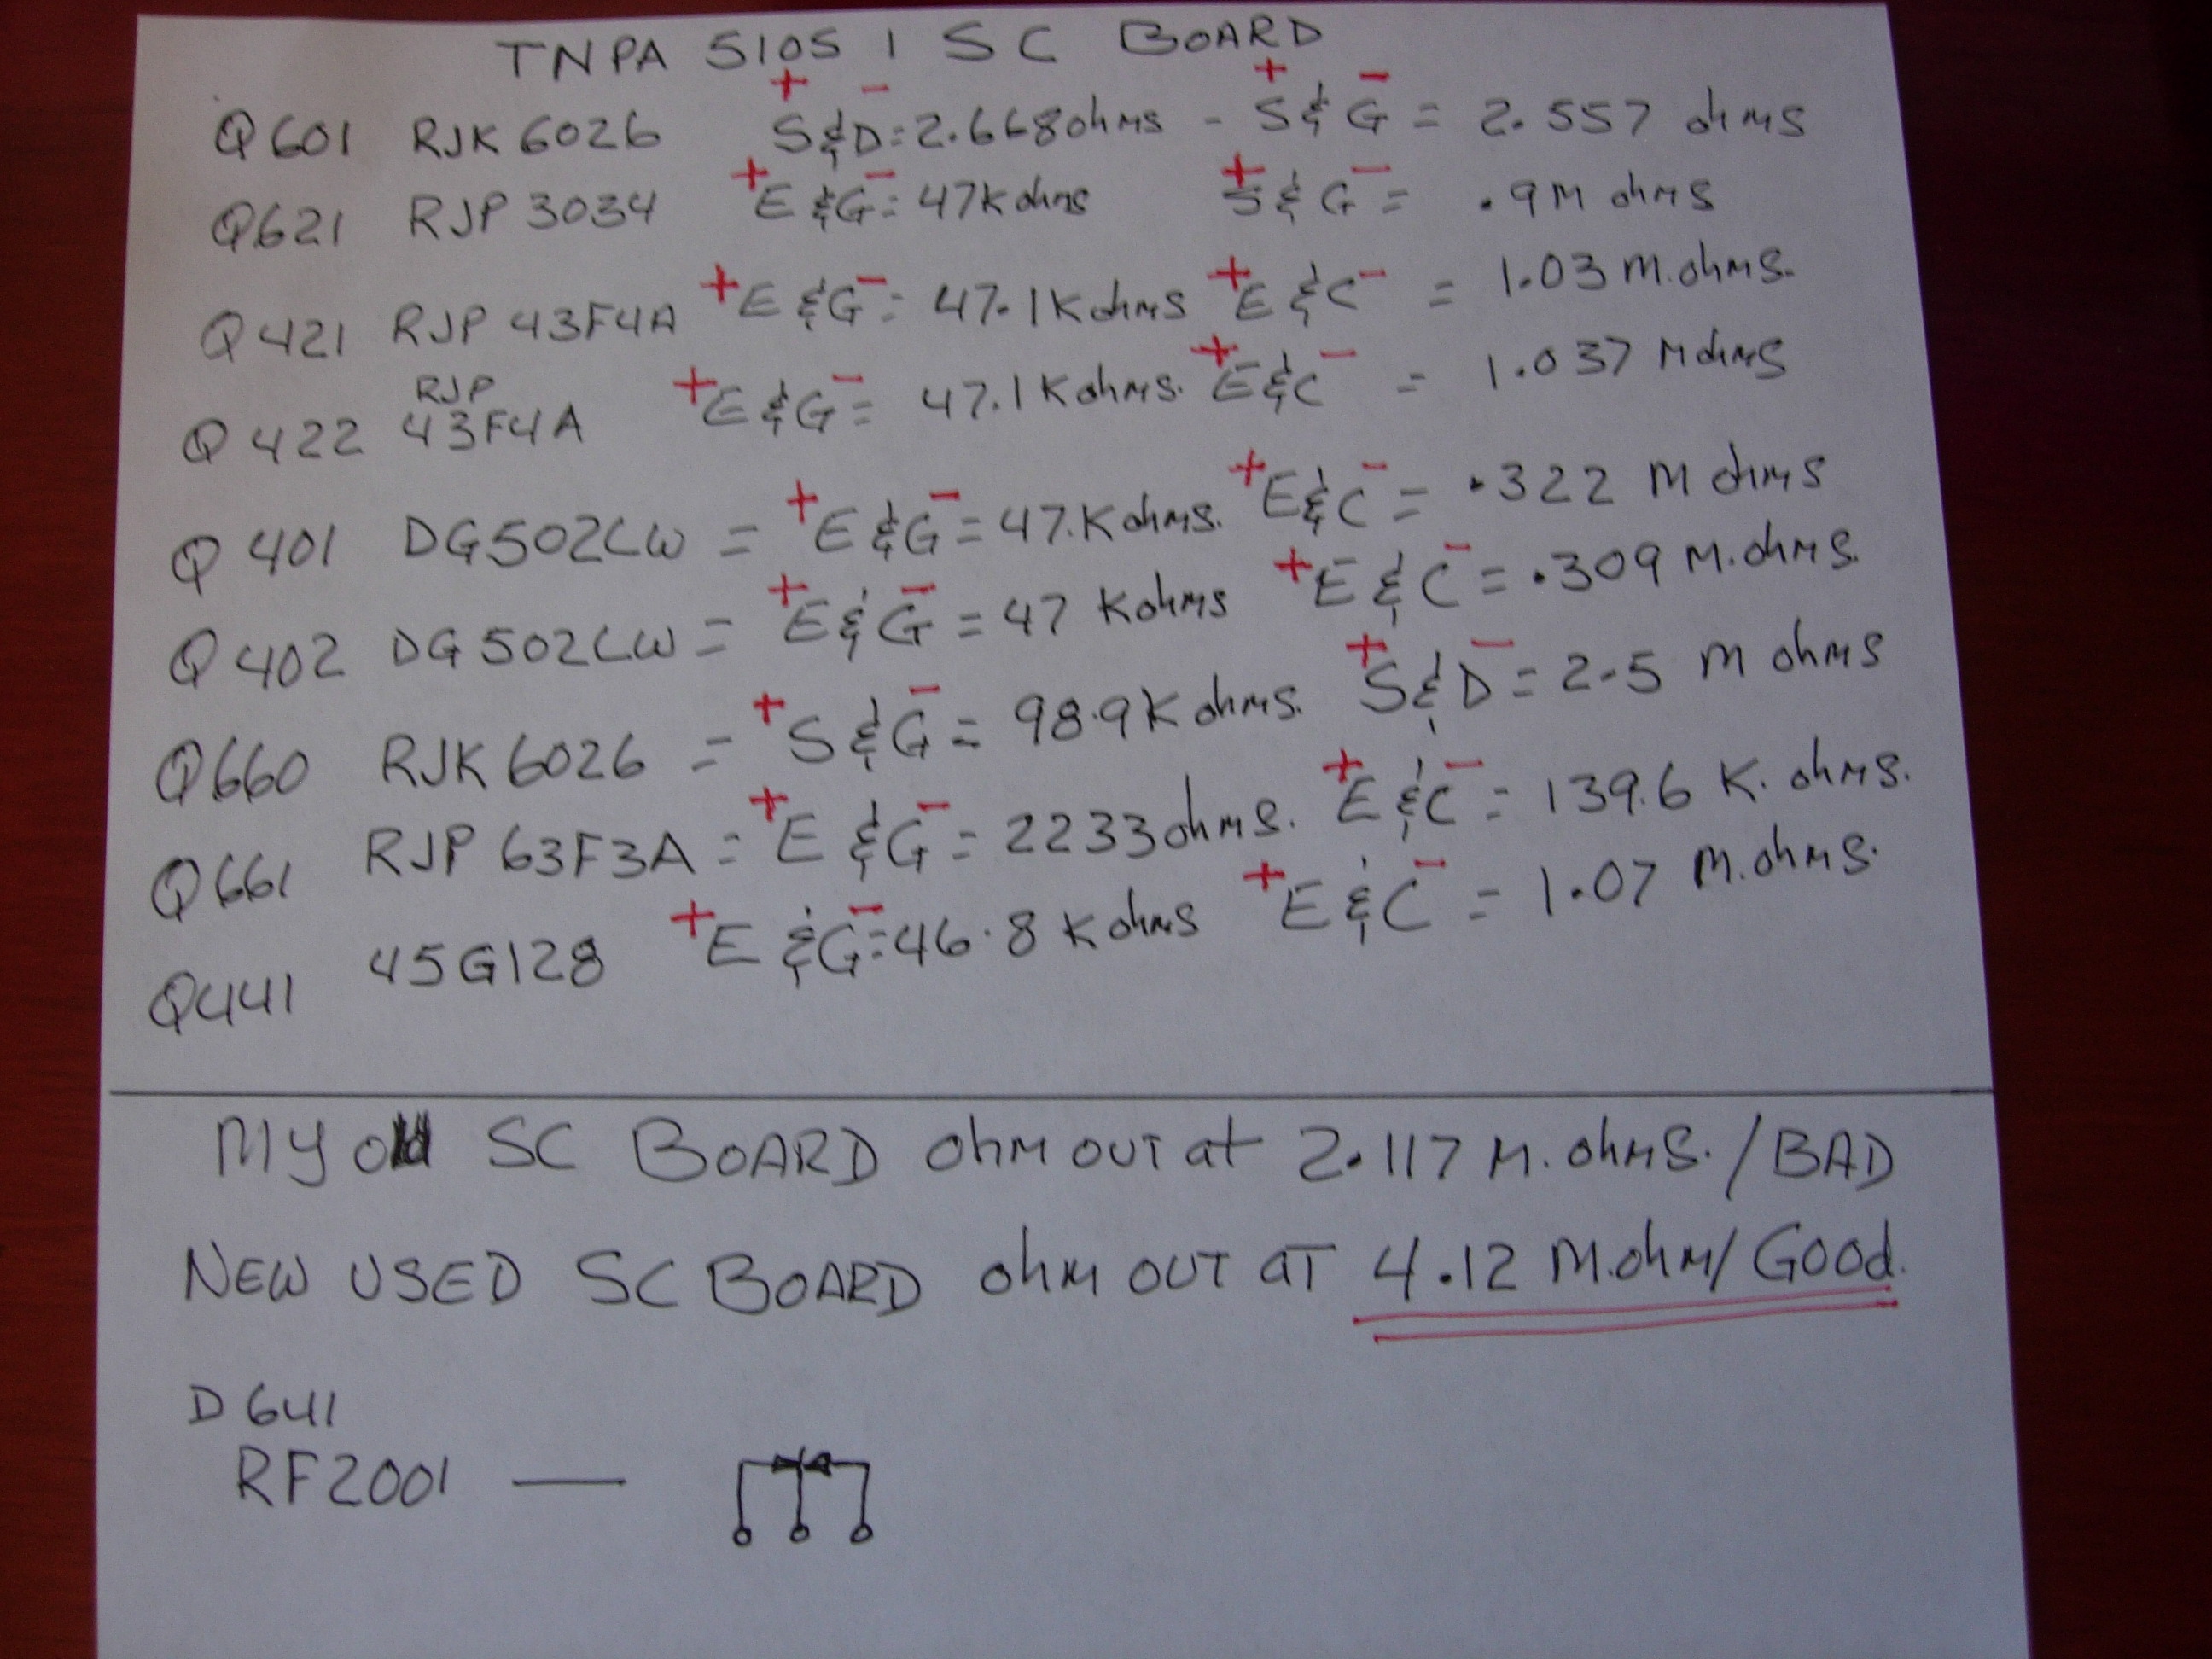 TNPA 5105 1 SC BOARD
Q601 RJK 6026 + S & D - = 2.668 ohms - + S & G - = 2.557 ohms
Q621 RJP 3034 + E & G - = 47K ohms + S & G - = .9M ohms
Q421 RJP 43F4A + E & G - = 47.1K ohms + E & C - = 1.03 M.ohms.
Q422 RJP 43F4A + E & G - = 47.1K ohms. + E & C - = 1.037 M ohms
Q401 DG502CW = + E & G - = 47.K ohms. + E & C - = .322 M ohms
Q402 DG502CW = + E & G - = 47 K ohms + E & C - = .309 M.ohms.
Q660 RJK 6026 = + S & G - = 98.9K ohms. + S & D - = 2.5 M ohms
Q661 RJP 63F3A = + E & G - = 2233 ohms. + E & C - = 139.6 K. ohms.
Q441 45G128 + E & G - = 46.8 K ohms + E & C - = 1.07 M.ohms.
MY old SC BOARD ohm OUT at 2.117 M. ohms. / BAD
NEW USED SC BOARD ohm OUT AT 4.12 M.ohm / Good.
D641
RF2001 —